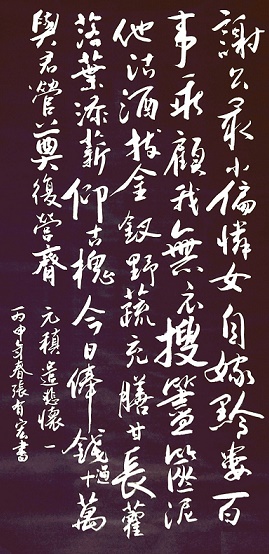 謝公最小偏憐女自嫁黔婁百
事乖顧我無衣搜藎篋泥
他沽酒拔金釵野蔬充膳甘長藿
落葉添薪仰古槐今日俸錢過十萬
與君營奠復營齋
元稹遣悲懷一
丙申年春張有宏書